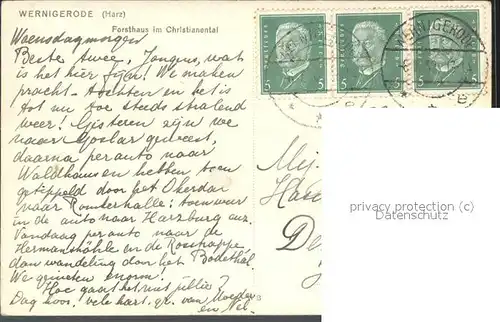 WERNIGERODE (Harz)
Forsthaus im Christianental
Woensdagmorgen
Beste Jongens, wat
is het hier fijn! We maken
pracht-tochten en het is
tot nu toe steeds stralend
weer! Gisteren zijn we
naar Goslar geweest,
daarna per auto naar
Waldhaus en hebben toen
getippeld door het Okerdal
naar Romkerhalle: toen weer
in de auto naar Harzburg enz.
Vandaag per auto naar de
Hermanshöhle en de Rosstrappe
dan wandeling door het Bodethal.
We genieten enorm!
Hoe gaat het met jullie?
Dag hoor, vele hart. gr. van Moeder
en Nel.
DEUTSCHES REICH DEUTSCHES REICH DEUTSCHES REICH
5 5 5 5
WERNIGERODE
Mij
De
privacy protection (c)